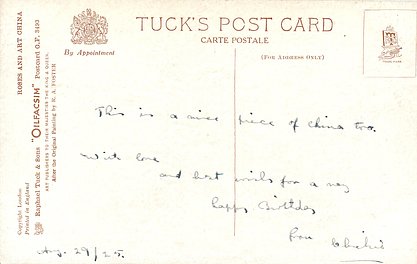 TUCK'S POST CARD
CARTE POSTALE
By Appointment
(FOR ADDRESS ONLY)
ROSES AND ART CHINA
"OILFACSIM" Postcard O.F. 3493
Raphael Tuck & Sons
ART PUBLISHERS TO THEIR MAJESTIES THE KING & QUEEN.
After the Original Painting by R. A. FOSTER
Copyright London
Printed in England
This is a nice piece of china too.
With love
and best wishes for a very
happy Birthday
from
Aug. 29/25.